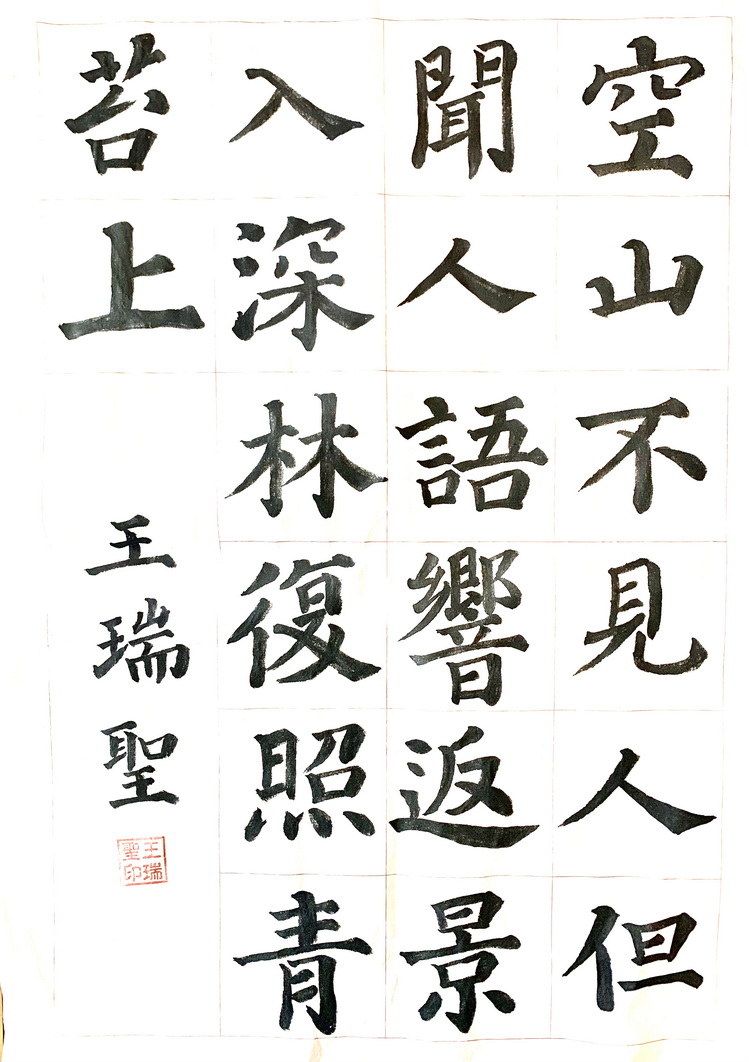 空山不見人但
聞人語響返景
入深林復照青
苔上
王瑞聖
王瑞聖印